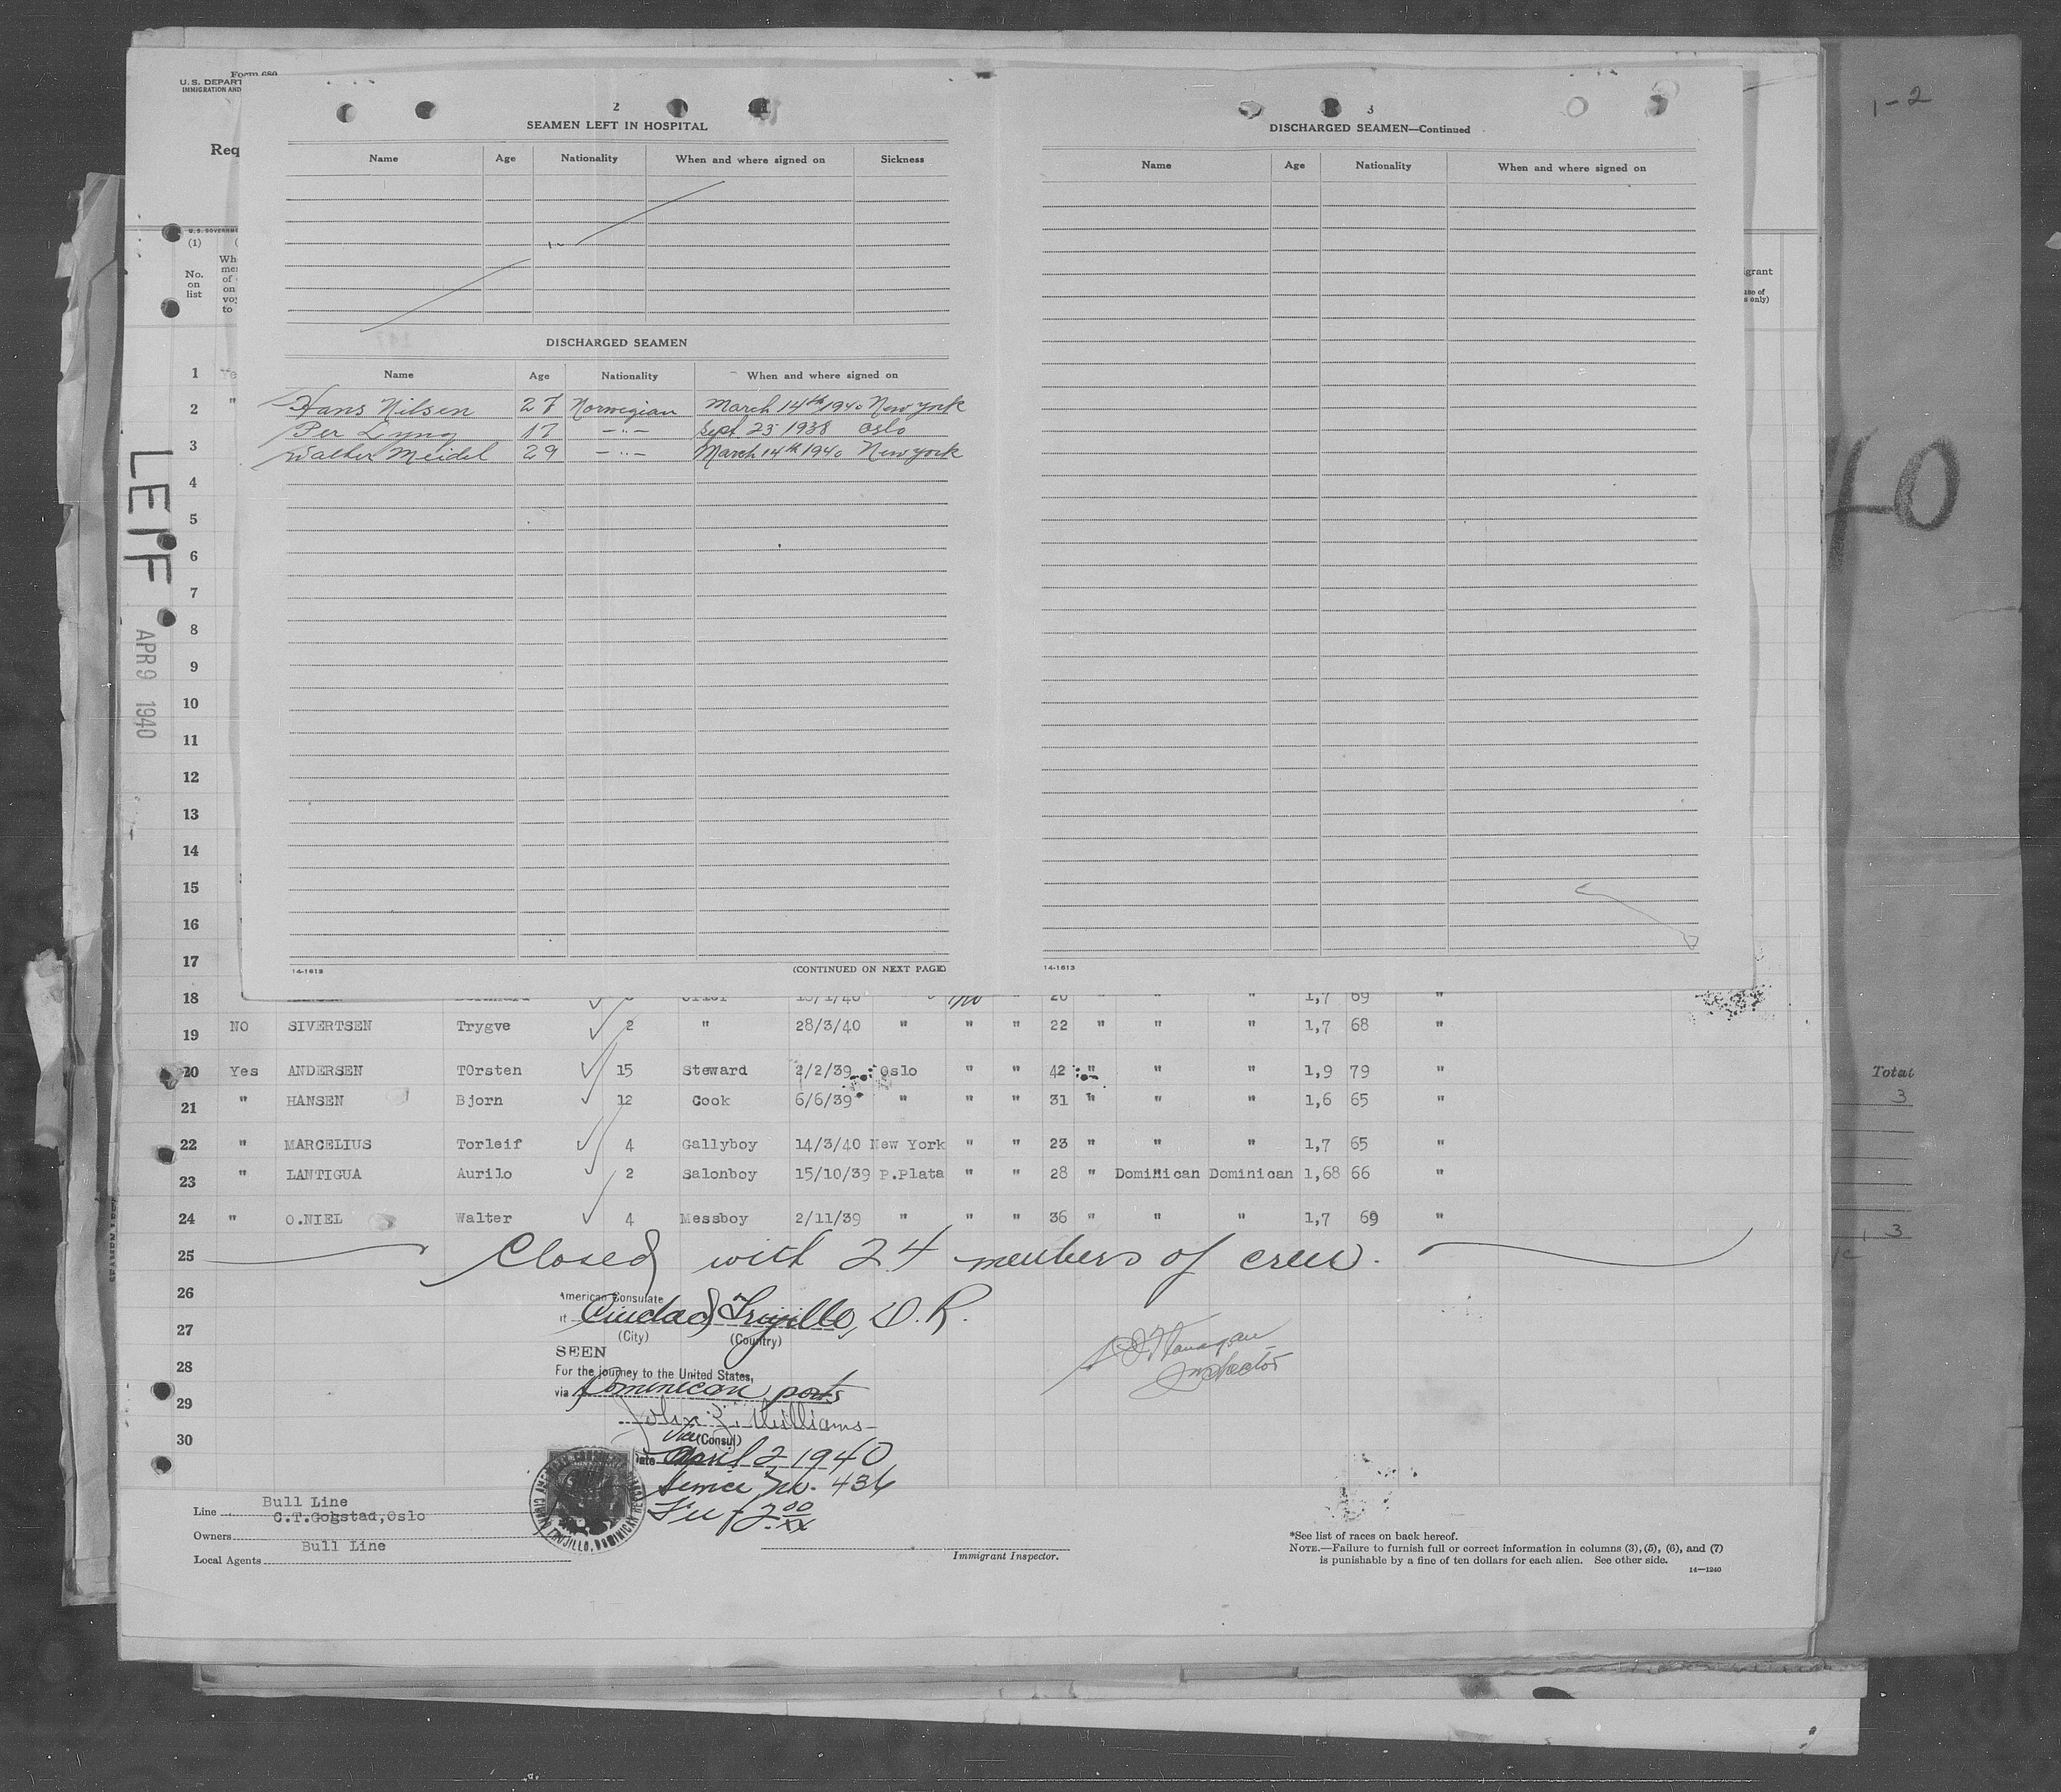 Form 680
U.S. DEPART
IMMIGRATION AND
Req
U.S. GOVERNM
(1) (
No. on list
Wh
mem
of
on
voy
to
2
SEAMEN LEFT IN HOSPITAL
Name Age Nationality When and where signed on Sickness
DISCHARGED SEAMEN
Name Age Nationality When and where signed on
Hans Nilsen 27 Norwegian March 14th 1940 New york
Per Lyng 17 —"— Sept. 25 1938 Oslo
Walter Meidel 29 —"— March 14th 1940 New york
14-1613 (CONTINUED ON NEXT PAGE)
3
DISCHARGED SEAMEN—Continued
Name Age Nationality When and where signed on
14-1613
1-2
40
igrant
use of
s only)
LEIF
APR 9 1940
1 Ye
2 "
3
4
5
6
7
8
9
10
11
12
13
14
15
16
17
18 20 " " " 1,7 69 "
19 NO SIVERTSEN Trygve 2 " 28/3/40 " " " 22 " " " 1,7 68 "
20 Yes ANDERSEN TOrsten 15 Steward 2/2/39 Oslo " " 42 " " " 1,9 79 "
21 " HANSEN Bjorn 12 Cook 6/6/39 " " " 31 " " " 1,6 65 "
22 " MARCELIUS Torleif 4 Gallyboy 14/3/40 New York " " 23 " " " 1,7 65 "
23 " LANTIGUA Aurilo 2 Salonboy 15/10/39 P.Plata " " 28 " Dominican Dominican 1,68 66 "
24 " O.NIEL Walter 4 Messboy 2/11/39 " " " 36 " " " 1,7 69 "
25 Closed with 24 members of crew.
26
27
28
29
30
American Consulate
at Ciudad Trujillo, D.R.
(City) (Country)
SEEN
For the journey to the United States,
via Dominican ports
John Z. Williams
Vice (Consul)
Date April 2 1940
Service No. 436
Fee $2.00
Inspector
Total
3
3
Line Bull Line
C.T.Gogstad,Oslo
Owners
Bull Line
Local Agents
Immigrant Inspector.
*See list of races on back hereof.
NOTE.—Failure to furnish full or correct information in columns (3), (5), (6), and (7)
is punishable by a fine of ten dollars for each alien. See other side.
14—1240